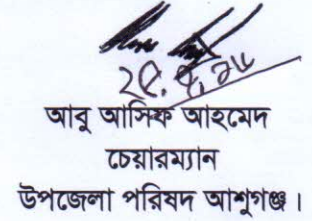 ২৫.৫.১৬
আবু আসিফ আহমেদ
চেয়ারম্যান
উপজেলা পরিষদ আশুগঞ্জ।